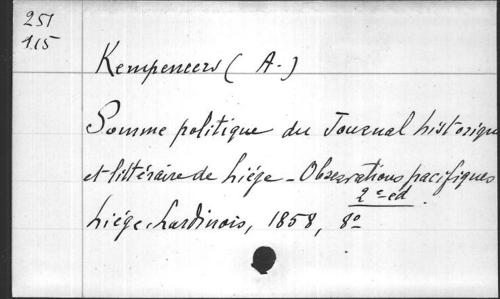 251
115
Kempeneers (A.)
Somme politique du Journal historique
et littéraire de Liége - Observations pacifiques
2e éd.
Liége, Lardinois, 1858, 8o